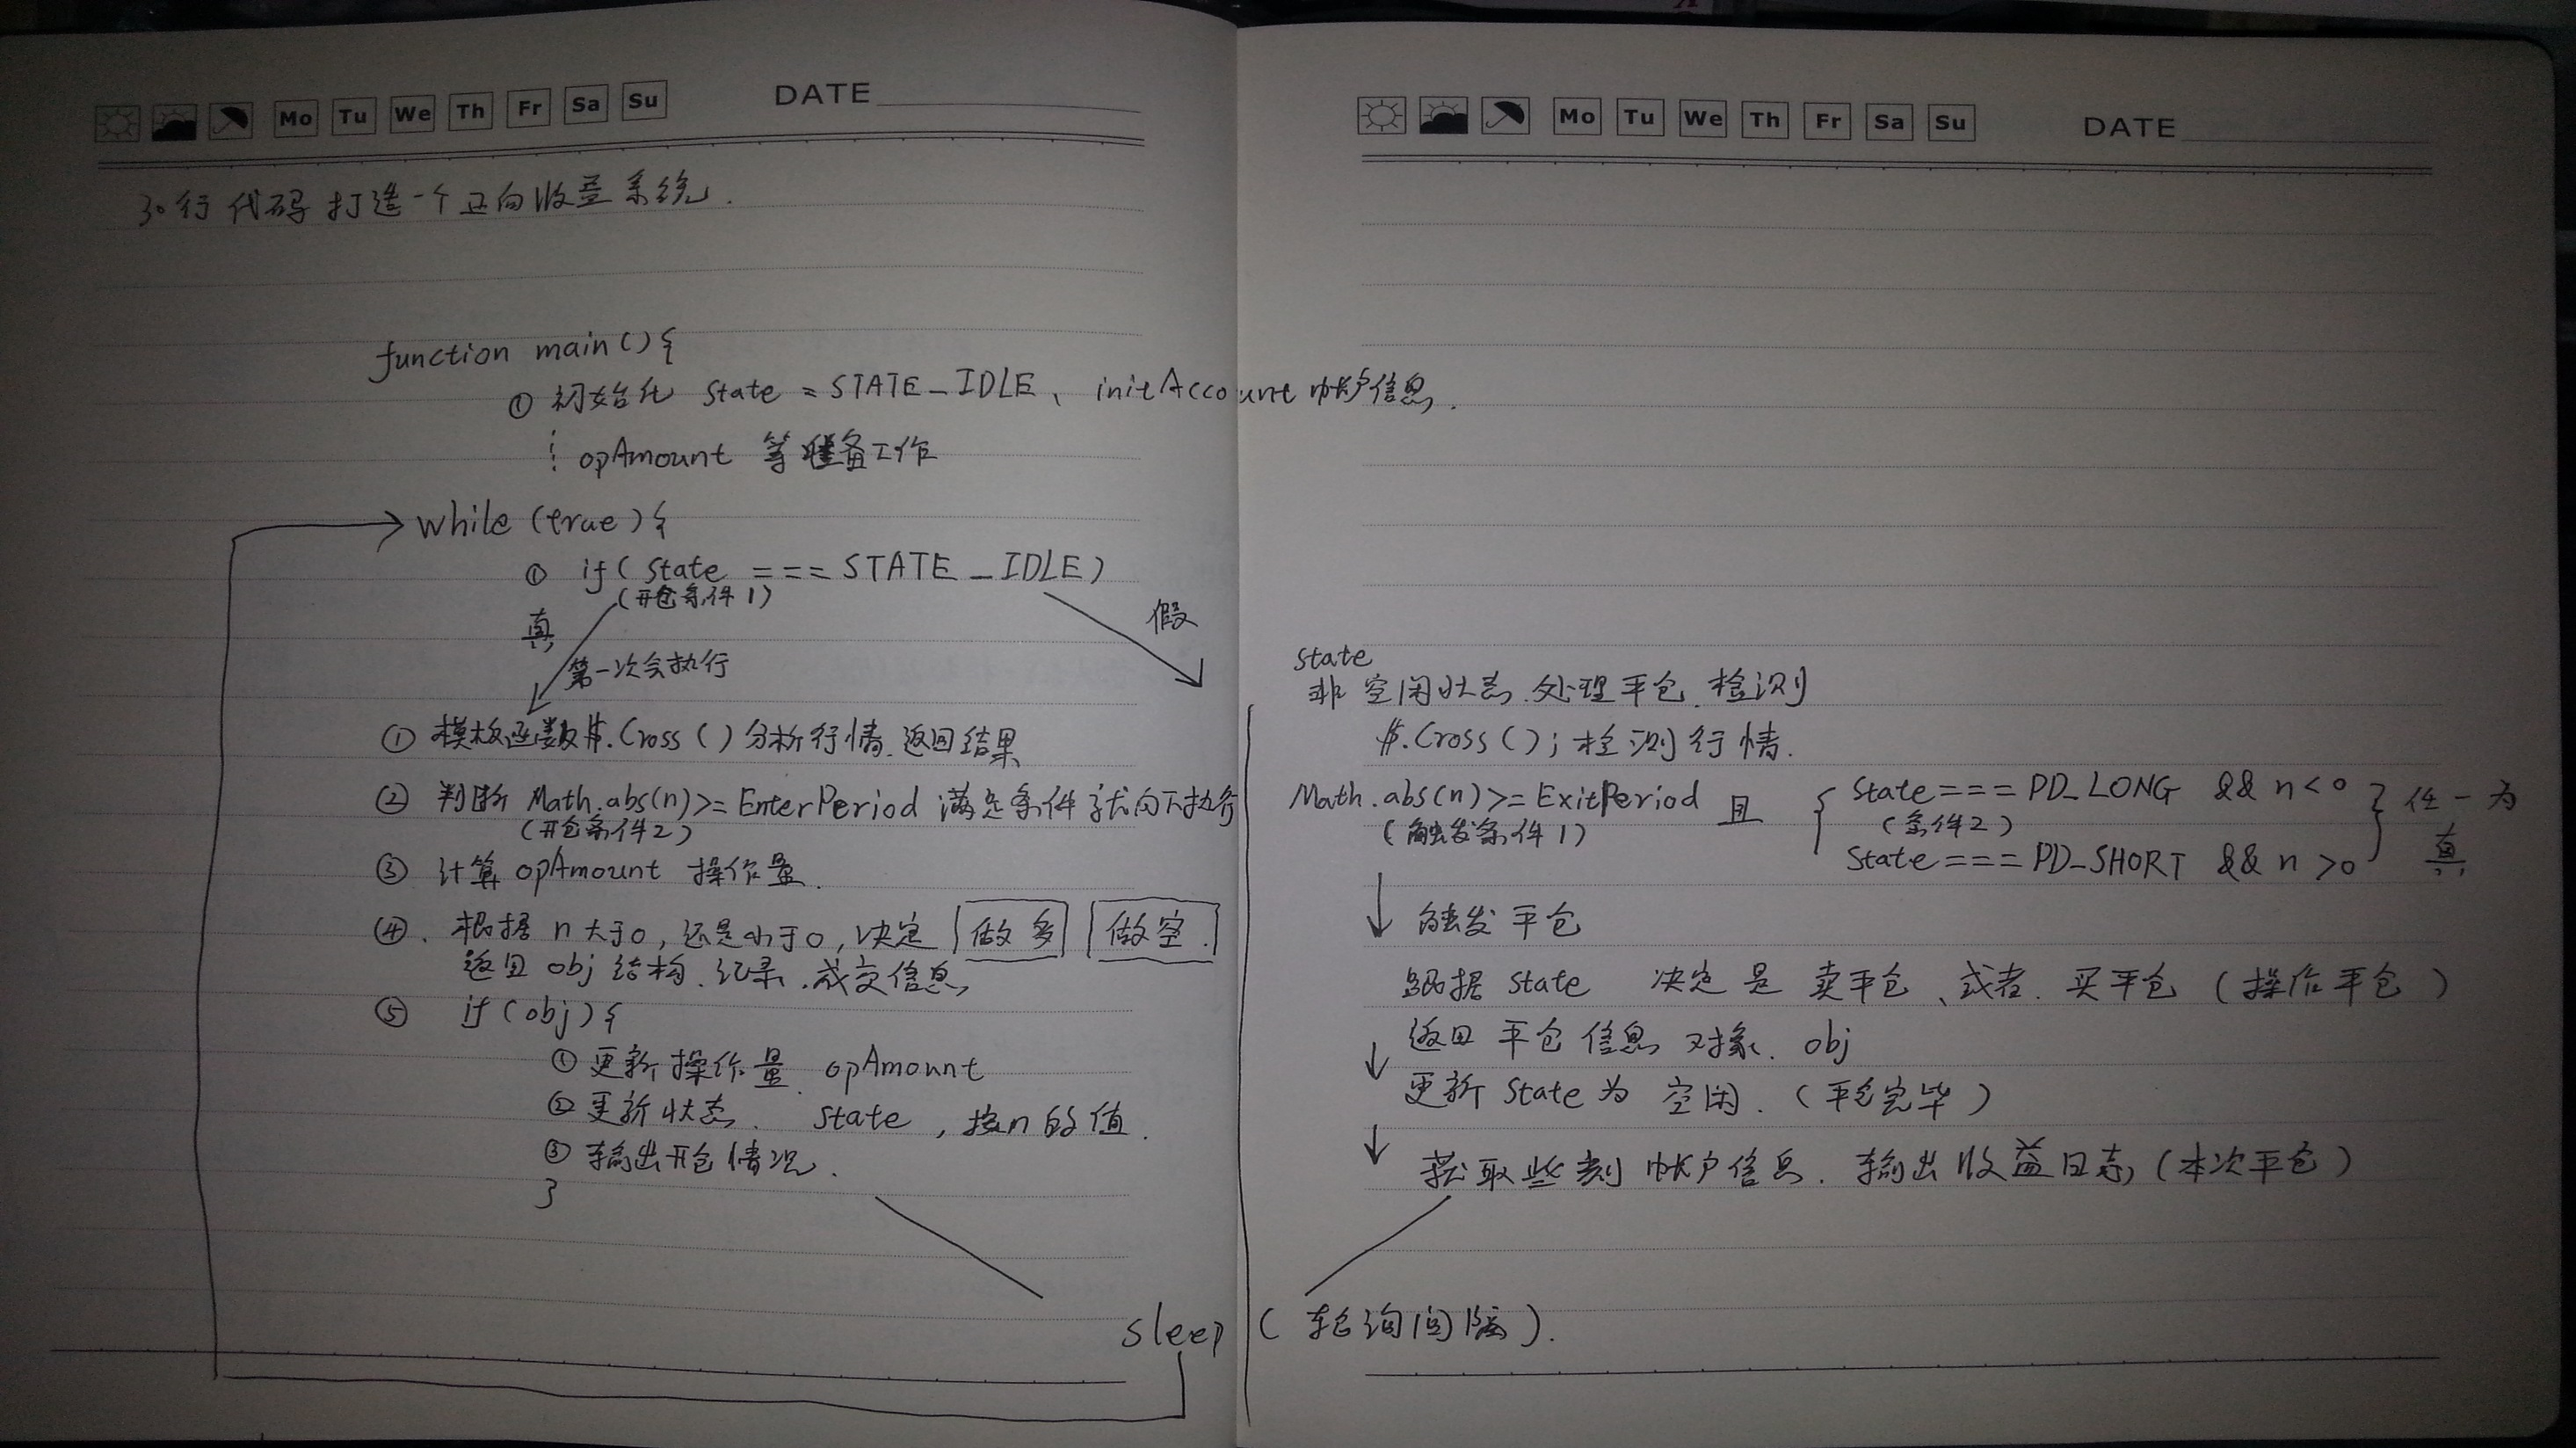 Mo Tu We Th Fr Sa Su DATE
30行代码打造一个正向收益系统.
function main(){
① 初始化 state = STATE_IDLE、initAccount 帐户信息.
opAmount 等准备工作
while (true){
① if( state === STATE_IDLE)
(开仓条件1)
真
假
第一次会执行
① 模板函数$.Cross()分析行情.返回结果
② 判断 Math.abs(n)>= EnterPeriod 满足条件就向下执行
(开仓条件2)
③ 计算 opAmount 操作量.
④. 根据 n大于0,还是小于0,决定 做多 做空.
返回 obj 结构.记录.成交信息
⑤ if(obj){
①更新操作量. opAmount
②更新状态. state ,按n的值.
③输出开仓情况.
}
Mo Tu We Th Fr Sa Su DATE
state
非空闲状态.处理平仓.检测
$.Cross();检测行情.
Math.abs(n)>= ExitPeriod 且 { state=== PD_LONG && n<0 } 任一为
(触发条件1) (条件2)
state=== PD_SHORT && n>0 真
↓ 触发平仓
跟据 state 决定是 卖平仓、或者.买平仓(操作平仓)
返回平仓信息对象. obj
↓ 更新 state 为 空闲.(平仓完毕)
↓ 获取些刻帐户信息. 输出收益日志(本次平仓)
sleep (轮询间隔).